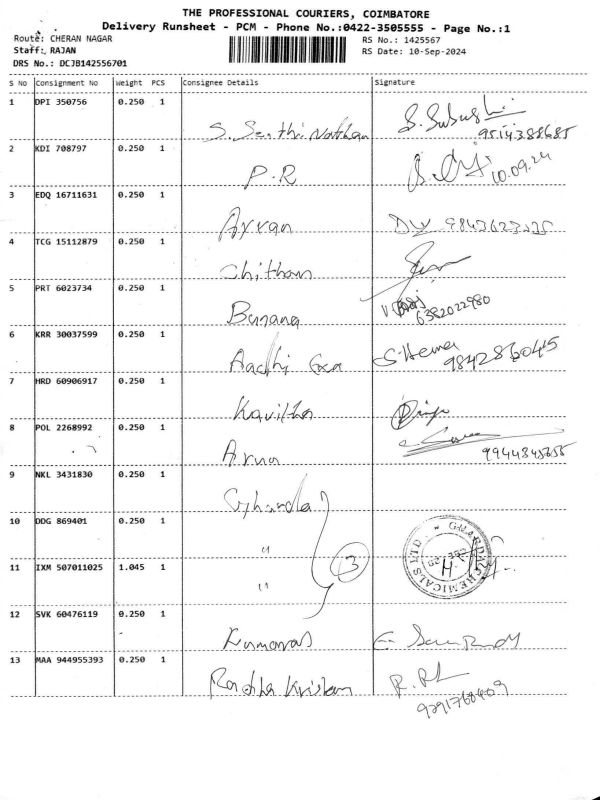 THE PROFESSIONAL COURIERS, COIMBATORE
Delivery Runsheet - PCM - Phone No.:0422-3505555 - Page No.:1
Route: CHERAN NAGAR
RS No.: 1425567
Staff: RAJAN
RS Date: 10-Sep-2024
DRS No.: DCJB142556701
S No Consignment No Weight PCS Consignee Details Signature
1 DPI 350756 0.250 1
S. Senthi Nathan S. Subushi
9514388685
2 KDI 708797 0.250 1
P.R 10.09.24
3 EDQ 16711631 0.250 1
Aryan
4 TCG 15112879 0.250 1
5 PRT 6023734 0.250 1
6382022980
6 KRR 30037599 0.250 1
Aadhi S. Hema
9842860415
7 HRD 60906917 0.250 1
Kavitha
8 POL 2268992 0.250 1
Aruna
9 NKL 3431830 0.250 1
10 DDG 869401 0.250 1
"
11 IXM 507011025 1.045 1
" 3
12 SVK 60476119 0.250 1
13 MAA 944955393 0.250 1
Radha Krishan
9291760409